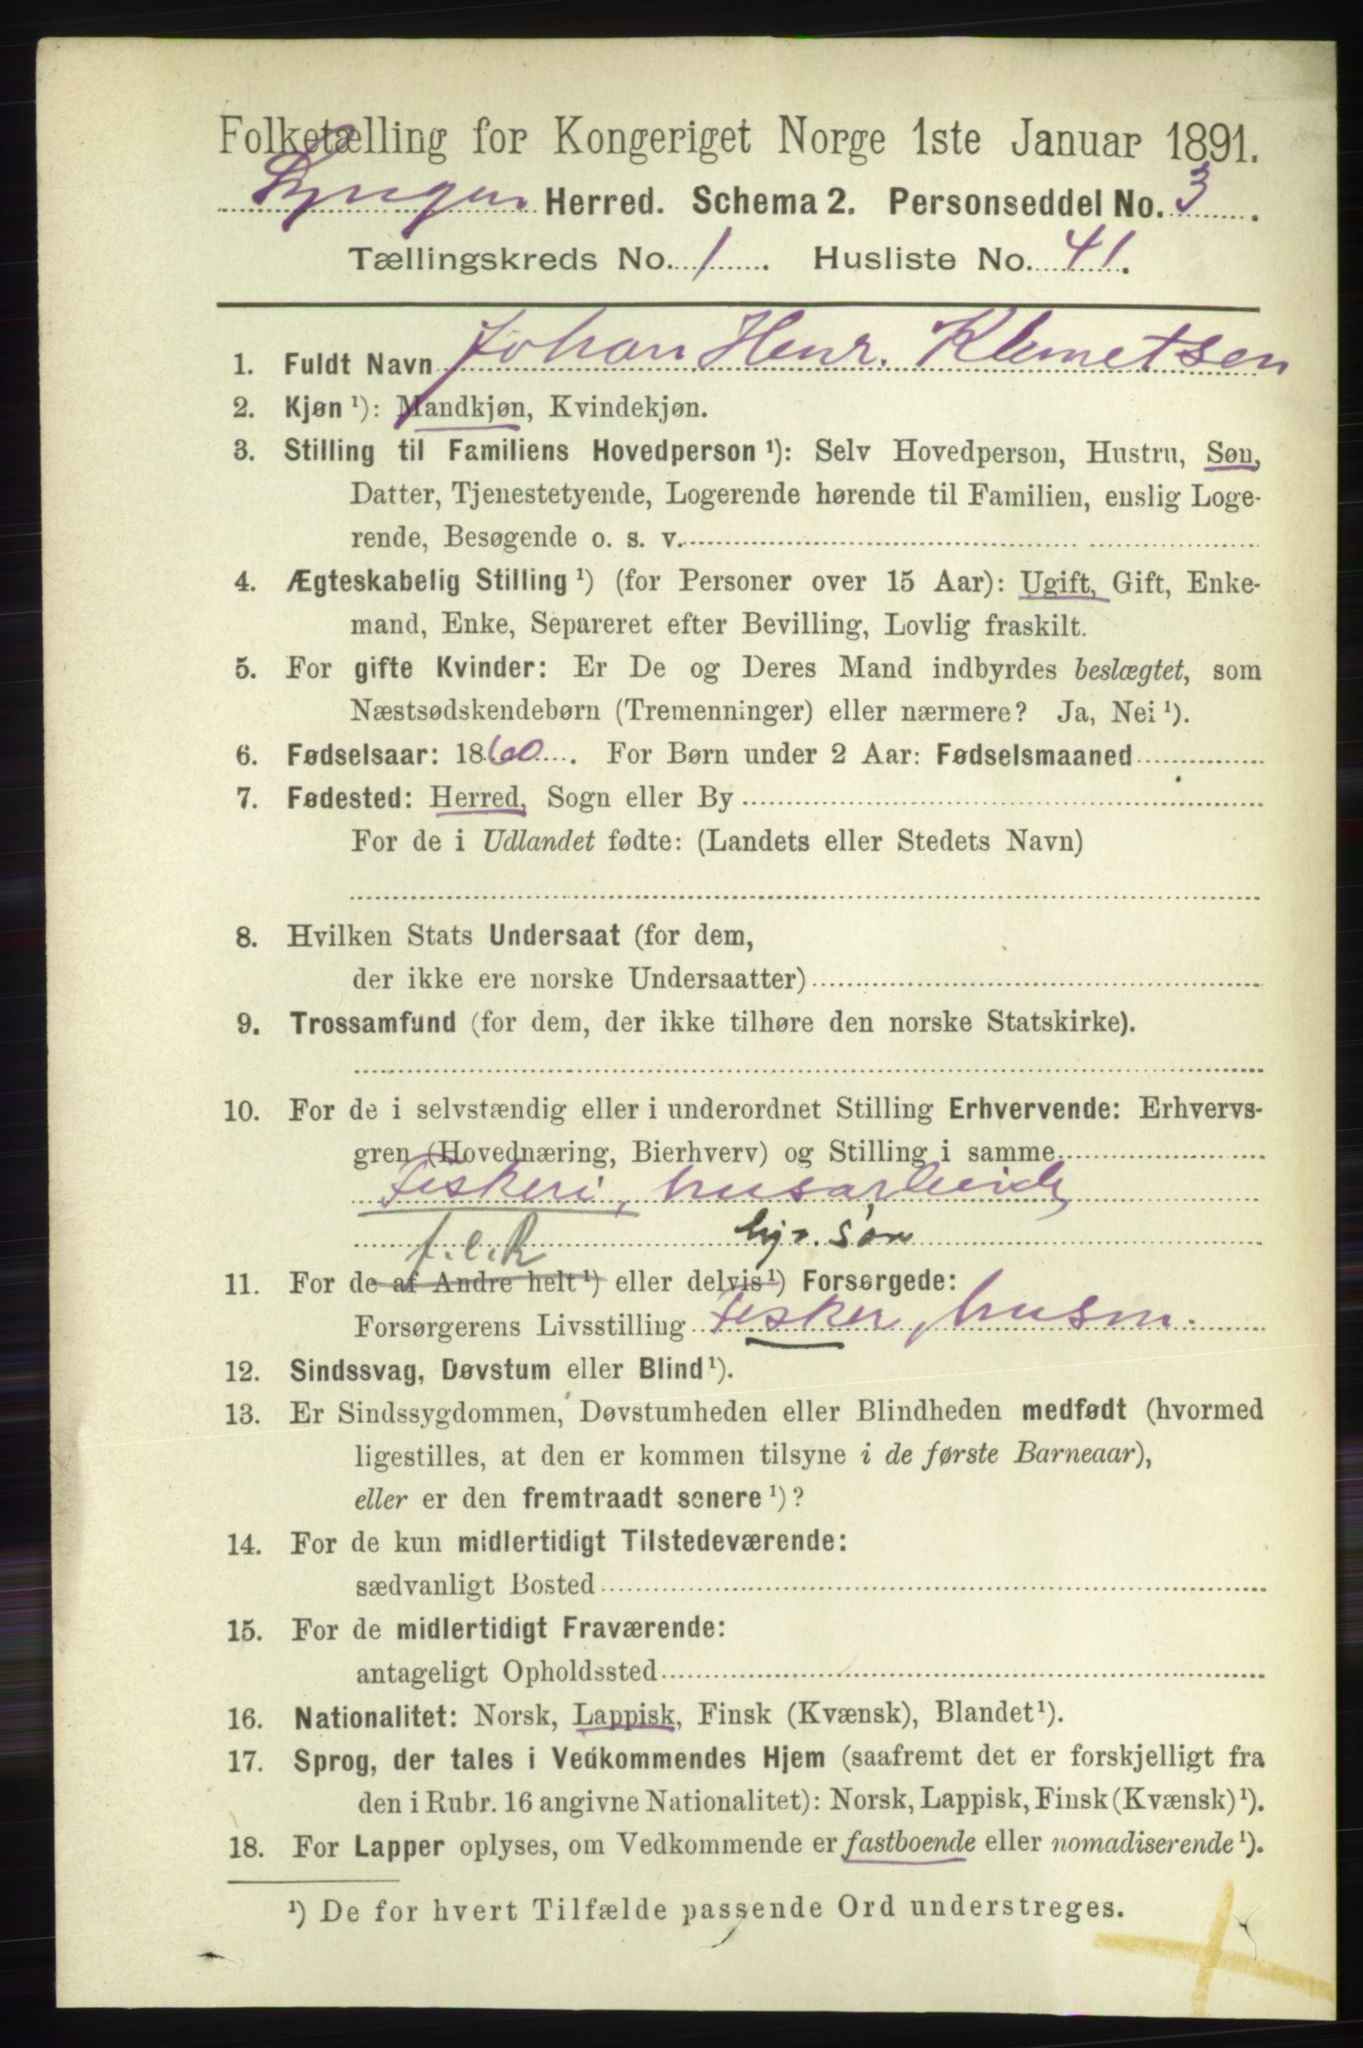 Folketælling for Kongeriget Norge 1ste Januar 1891.
Lyngen Herred. Schema 2. Personseddel No. 3.
Tællingskreds No. 1. Husliste No. 41.
1. Fuldt Navn Johan Henr. Klemetsen
2. Kjøn ¹): Mandkjøn, Kvindekjøn.
3. Stilling til Familiens Hovedperson ¹): Selv Hovedperson, Hustru, Søn,
Datter, Tjenestetyende, Logerende hørende til Familien, enslig Loge-
rende, Besøgende o. s. v.
4. Ægteskabelig Stilling ¹) (for Personer over 15 Aar): Ugift, Gift, Enke-
mand, Enke, Separeret efter Bevilling, Lovlig fraskilt.
5. For gifte Kvinder: Er De og Deres Mand indbyrdes beslægtet, som
Næstsødskendebørn (Tremenninger) eller nærmere? Ja, Nei ¹).
6. Fødselsaar: 1860. For Børn under 2 Aar: Fødselsmaaned
7. Fødested: Herred, Sogn eller By
For de i Udlandet fødte: (Landets eller Stedets Navn)
8. Hvilken Stats Undersaat (for dem,
der ikke ere norske Undersaatter)
9. Trossamfund (for dem, der ikke tilhøre den norske Statskirke).
10. For de i selvstændig eller i underordnet Stilling Erhvervende: Erhvervs-
gren (Hovednæring, Bierhverv) og Stilling i samme
Fiskeri, husarbeide
f.l.R hjv. søn
11. For de af Andre helt ¹) eller delvis ¹) Forsørgede:
Forsørgerens Livsstilling Fisker, husm.
12. Sindssvag, Døvstum eller Blind ¹).
13. Er Sindssygdommen, Døvstumheden eller Blindheden medfødt (hvormed
ligestilles, at den er kommen tilsyne i de første Barneaar),
eller er den fremtraadt senere ¹)?
14. For de kun midlertidigt Tilstedeværende:
sædvanligt Bosted
15. For de midlertidigt Fraværende:
antageligt Opholdssted
16. Nationalitet: Norsk, Lappisk, Finsk (Kvænsk), Blandet ¹).
17. Sprog, der tales i Vedkommendes Hjem (saafremt det er forskjelligt fra
den i Rubr. 16 angivne Nationalitet): Norsk, Lappisk, Finsk (Kvænsk) ¹).
18. For Lapper oplyses, om Vedkommende er fastboende eller nomadiserende ¹).
¹) De for hvert Tilfælde passende Ord understreges.